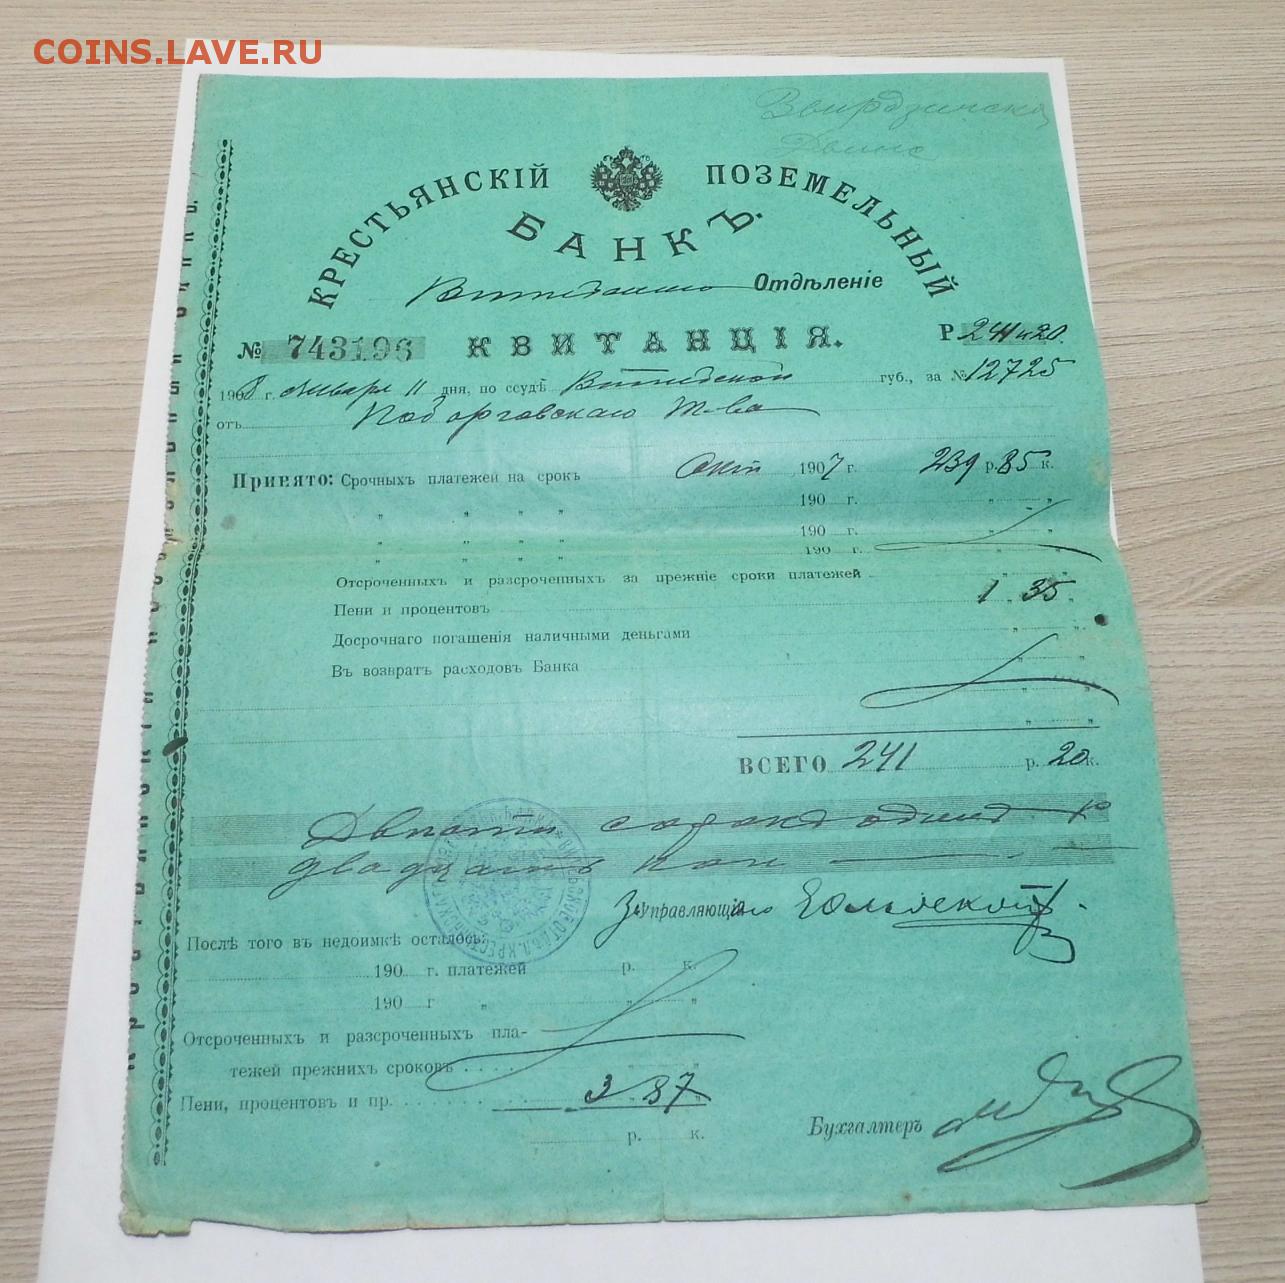 COINS.LAVE.RU
КРЕСТЬЯНСКІЙ ПОЗЕМЕЛЬНЫЙ
БАНКЪ.
Отдѣленіе
№ 743196 КВИТАНЦІЯ. Р. 241 к 20.
1908 г. Января 11 дня, по ссудѣ Витебской губ., за № 12725
отъ Подорговскаго Т-ва
Принято: Срочныхъ платежей на срокъ Окт 1907 г. 239 р. 85 к.
" " " " 190 г. " "
" " " " 190 г. " "
" " " " 190 г. " "
Отсроченныхъ и разсроченныхъ за прежніе сроки платежей " "
Пени и процентовъ 1 " 35 "
Досрочнаго погашенія наличными деньгами " "
Въ возвратъ расходовъ Банка " "
" "
" "
ВСЕГО 241 р. 20 к.
Двѣсти сорокъ одинъ р
двадцать коп
Управляющій
Послѣ того въ недоимкѣ осталось:
190 г. платежей р. к.
190 г " " "
Отсроченныхъ и разсроченныхъ пла-
тежей прежнихъ сроковъ . . . . " "
Пени, процентовъ и пр. . . . . . . . . 3 87 "
р. к.
Бухгалтеръ